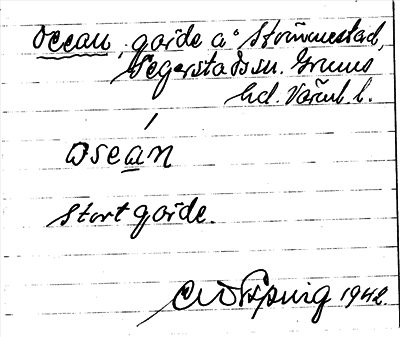 Ocean, gärde å Strömmestad,
Segerstads sn. Grums
hd. Värml. l.
osean
stort gärde.
1942.